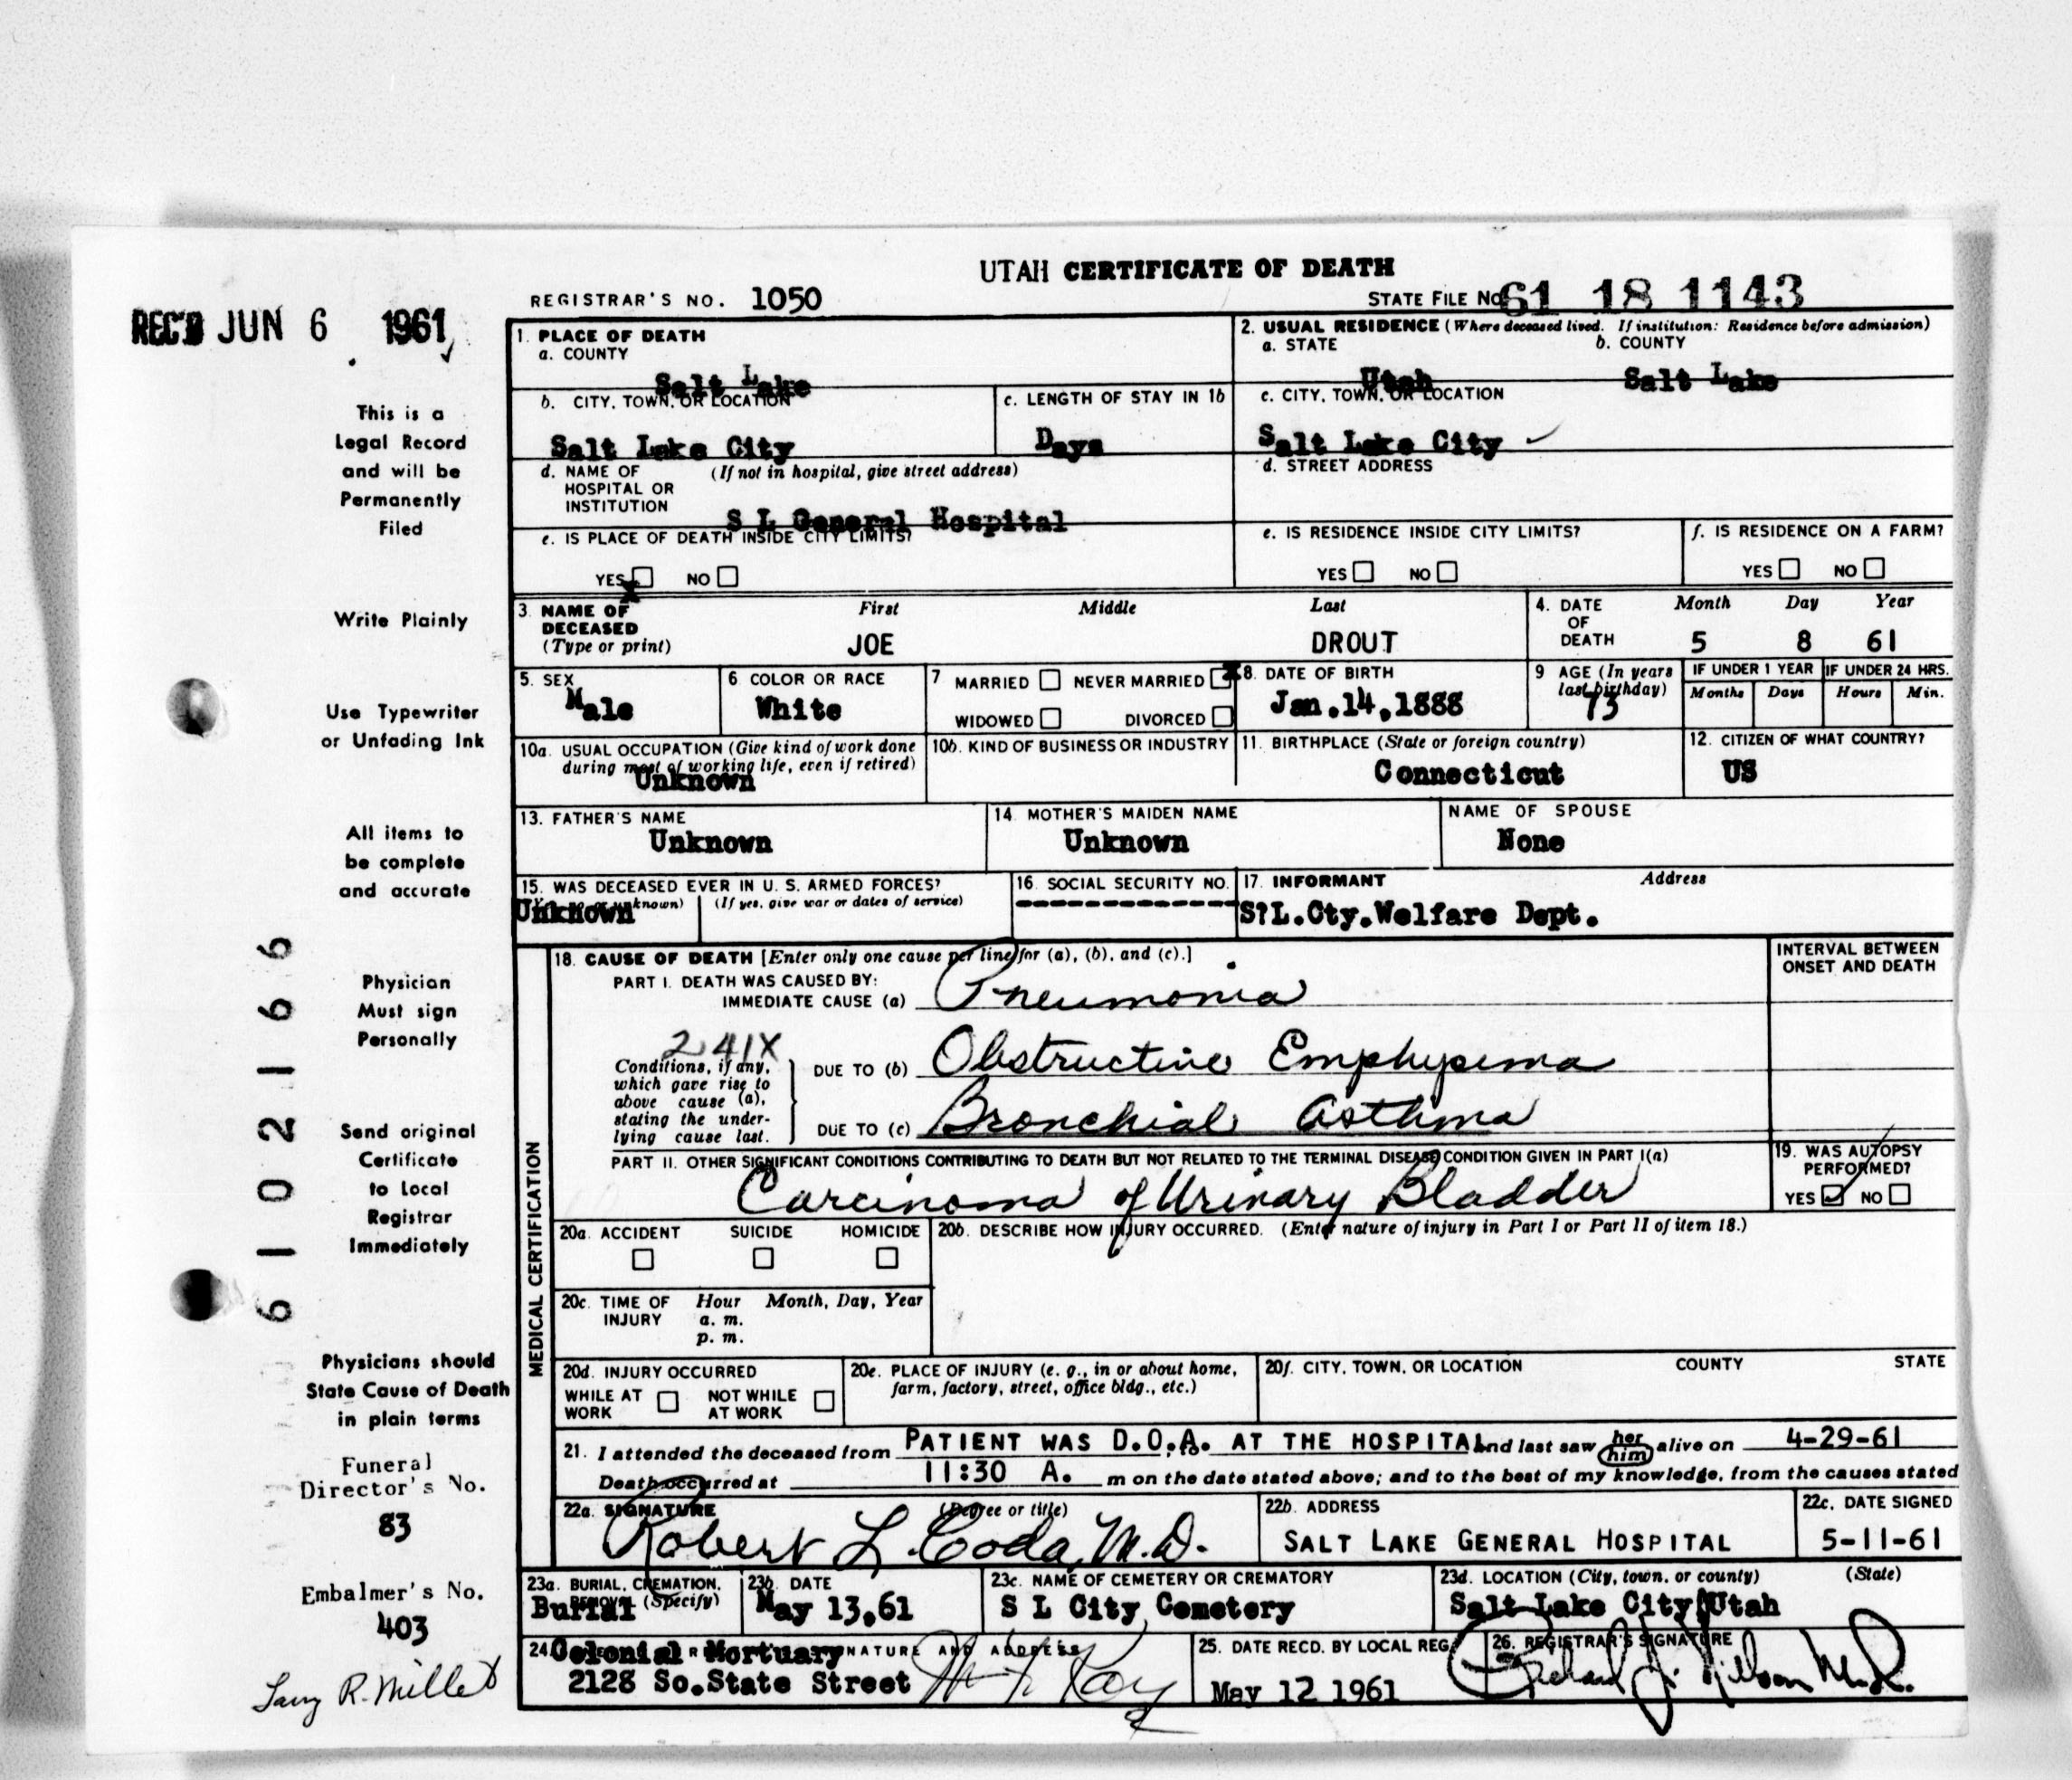 UTAH CERTIFICATE OF DEATH
REGISTRAR'S NO. 1050
STATE FILE NO. 61 18 1143
REC'D JUN 6 1961
This is a
Legal Record
and will be
Permanently
Filed
Write Plainly
Use Typewriter
or Unfading Ink
All items to
be complete
and accurate
Physician
Must sign
Personally
Send original
Certificate
to Local
Registrar
Immediately
Physicians should
State Cause of Death
in plain terms
Funeral
Director's No.
83
Embalmer's No.
403
Larry R. Millet
61102166
1. PLACE OF DEATH
a. COUNTY
Salt Lake
2. USUAL RESIDENCE (Where deceased lived. If institution: Residence before admission)
a. STATE
Utah
b. COUNTY
Salt Lake
b. CITY, TOWN, OR LOCATION
Salt Lake City
c. LENGTH OF STAY IN 1b
Days
c. CITY, TOWN, OR LOCATION
Salt Lake City
d. NAME OF (If not in hospital, give street address)
HOSPITAL OR
INSTITUTION
S L General Hospital
d. STREET ADDRESS
e. IS PLACE OF DEATH INSIDE CITY LIMITS?
YES X NO
e. IS RESIDENCE INSIDE CITY LIMITS?
YES NO
f. IS RESIDENCE ON A FARM?
YES NO
3. NAME OF DECEASED (Type or print)
First Middle Last
JOE DROUT
4. DATE OF DEATH
Month Day Year
5 8 61
5. SEX
Male
6 COLOR OR RACE
White
7 MARRIED NEVER MARRIED X
WIDOWED DIVORCED
8. DATE OF BIRTH
Jan.14,1888
9 AGE (In years last birthday)
73
IF UNDER 1 YEAR
Months Days
IF UNDER 24 HRS.
Hours Min.
10a. USUAL OCCUPATION (Give kind of work done
during most of working life, even if retired)
Unknown
10b. KIND OF BUSINESS OR INDUSTRY
11. BIRTHPLACE (State or foreign country)
Connecticut
12. CITIZEN OF WHAT COUNTRY?
US
13. FATHER'S NAME
Unknown
14. MOTHER'S MAIDEN NAME
Unknown
NAME OF SPOUSE
None
15. WAS DECEASED EVER IN U. S. ARMED FORCES?
Unknown
(If yes, give war or dates of service)
16. SOCIAL SECURITY NO.
17. INFORMANT Address
S?L.Cty.Welfare Dept.
MEDICAL CERTIFICATION
18. CAUSE OF DEATH [Enter only one cause per line for (a), (b), and (c).]
INTERVAL BETWEEN
ONSET AND DEATH
PART I. DEATH WAS CAUSED BY:
IMMEDIATE CAUSE (a) Pneumonia
241X
Conditions, if any,
which gave rise to
above cause (a),
stating the under-
lying cause last.
DUE TO (b) Obstructive Emphysema
DUE TO (c) Bronchial Asthma
PART II. OTHER SIGNIFICANT CONDITIONS CONTRIBUTING TO DEATH BUT NOT RELATED TO THE TERMINAL DISEASE CONDITION GIVEN IN PART I(a)
Carcinoma of Urinary Bladder
19. WAS AUTOPSY
PERFORMED?
YES ✓ NO
20a. ACCIDENT SUICIDE HOMICIDE
20b. DESCRIBE HOW INJURY OCCURRED. (Enter nature of injury in Part I or Part II of item 18.)
20c. TIME OF INJURY
Hour Month, Day, Year
a. m.
p. m.
20d. INJURY OCCURRED
WHILE AT WORK NOT WHILE AT WORK
20e. PLACE OF INJURY (e. g., in or about home,
farm, factory, street, office bldg., etc.)
20f. CITY, TOWN, OR LOCATION COUNTY STATE
21. I attended the deceased from PATIENT WAS D.O.A. to AT THE HOSPITAL and last saw her him alive on 4-29-61
Death occurred at 11:30 A. m on the date stated above; and to the best of my knowledge, from the causes stated
22a. SIGNATURE (Degree or title)
Robert L. Coda, M.D.
22b. ADDRESS
SALT LAKE GENERAL HOSPITAL
22c. DATE SIGNED
5-11-61
23a. BURIAL, CREMATION,
REMOVAL (Specify)
Burial
23b. DATE
May 13,61
23c. NAME OF CEMETERY OR CREMATORY
S L City Cemetery
23d. LOCATION (City, town, or county) (State)
Salt Lake City Utah
24. SIGNATURE AND ADDRESS
Colonial Mortuary
2128 So.State Street
25. DATE RECD. BY LOCAL REG.
May 12 1961
26. REGISTRAR'S SIGNATURE